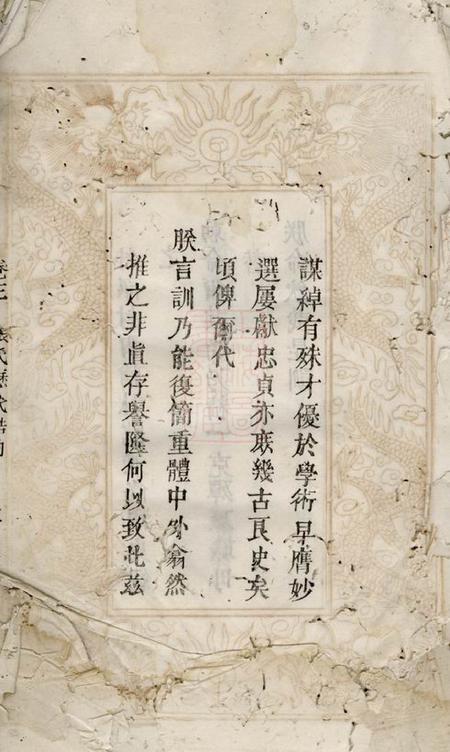 謀綽有殊才優於學術早膺妙
選屢獻忠貞亦庶幾古良史矣
頃俾爾代
朕言訓乃能復簡重體中外翕然
推之非眞存譽隆何以致此茲